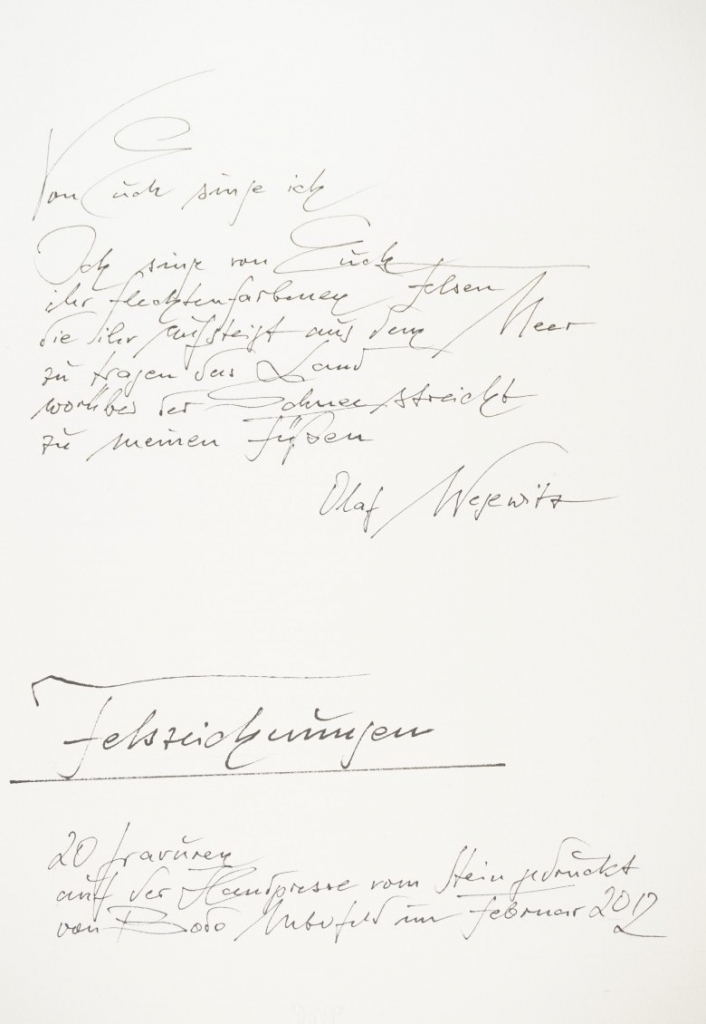 Von Euch singe ich
Ich singe von Euch
ihr flechtenfarbenen Felsen
die ihr aufsteigt aus dem Meer
zu tragen das Land
worüber der Schnee streicht
zu meinen Füßen
Olaf Wegewitz
Felszeichnungen
20 gravuren
auf der Handpresse vom Stein gedruckt
von Bodo im Februar 2012